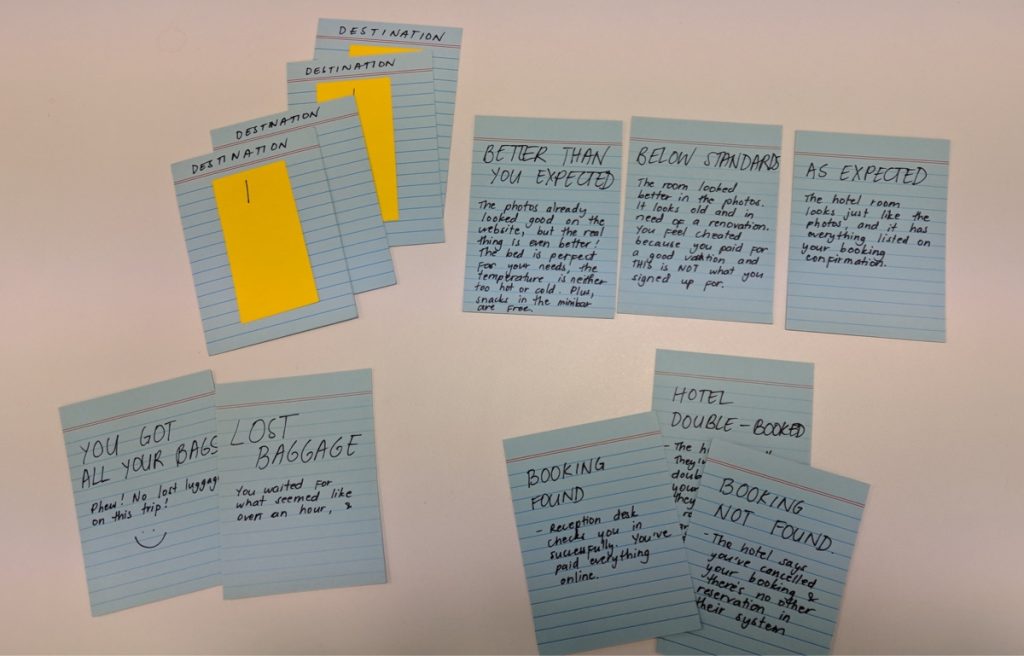 DESTINATION
DESTINATION
DESTINATION
DESTINATION
BETTER THAN
YOU EXPECTED
The photos already
looked good on the
website, but the real
thing is even better!
The bed is perfect
for your needs, the
temperature is neither
too hot or cold. Plus,
snacks in the minibar
are free.
BELOW STANDARDS
The room looked
better in the photos.
It looks old and in
need of a renovation.
You feel cheated
because you paid for
a good and
THIS is NOT what you
signed up for.
AS EXPECTED
The hotel room
looks just like the
photos, and it has
everything listed on
your booking
confirmation.
YOU GOT
ALL YOUR BAGS
Phew! No lost
on this trip!
LOST
BAGGAGE
You waited for
what seemed like
over an hour, &
HOTEL
DOUBLE-BOOKED
- The
BOOKING
FOUND
- Reception desk
checks you in
successfully. You've
paid everything
online.
BOOKING
NOT FOUND.
- The hotel says
you've cancelled
your booking &
there's no other
reservation in
their system